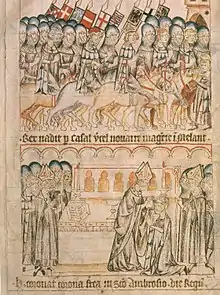 Rex vadit p casal vcel novarra magēte i melant
coronat corona frea in sco Ambrosio die Regū